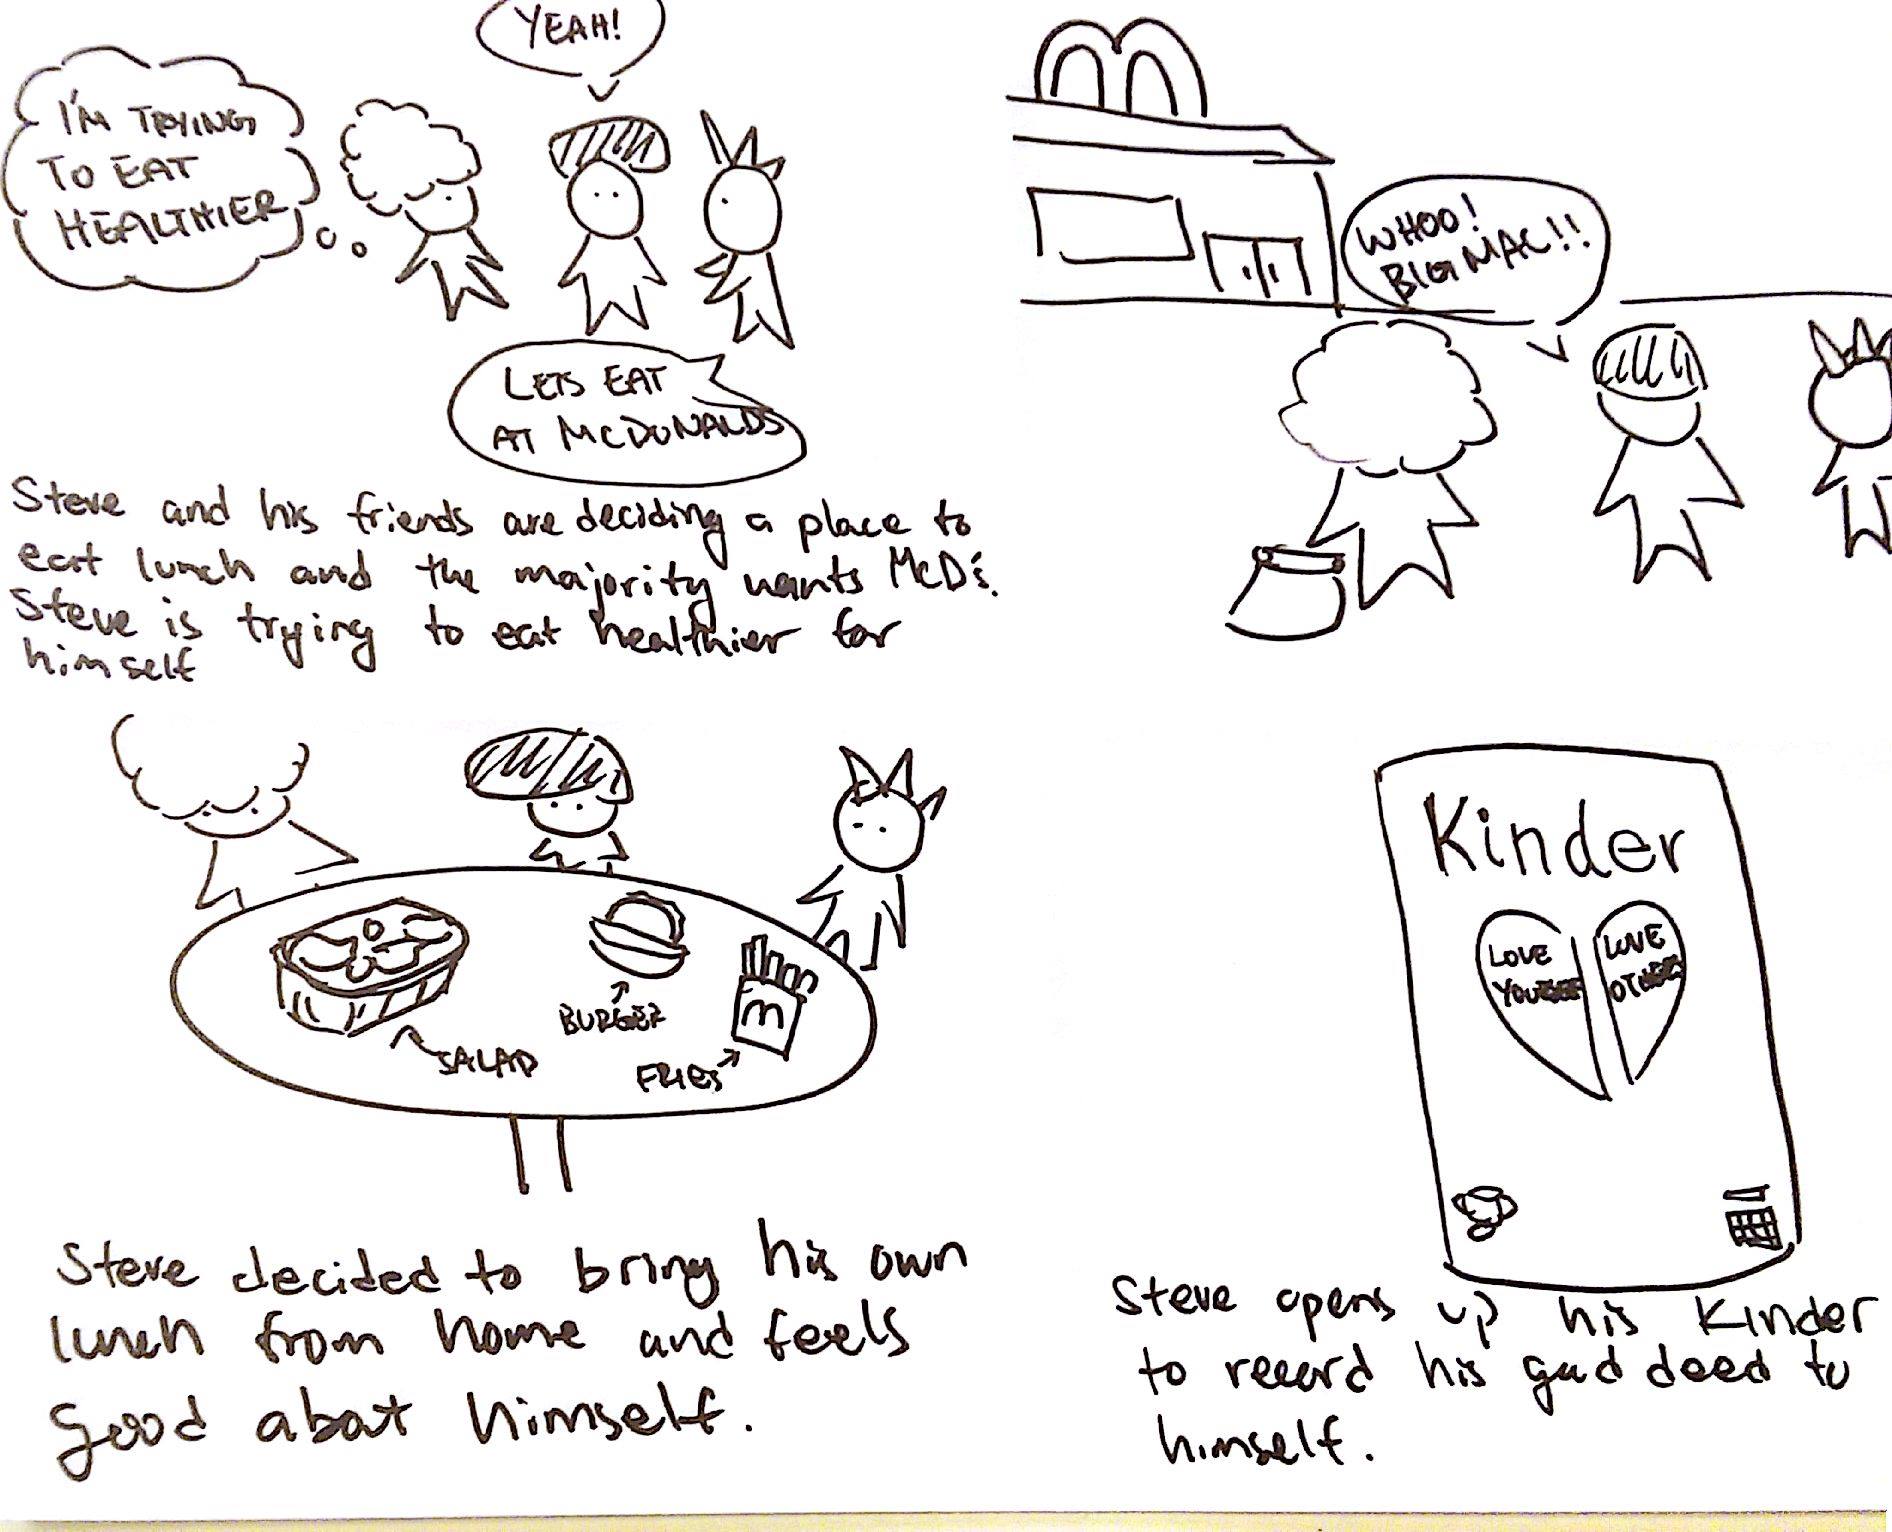 YEAH!
I'M TRYING
TO EAT
HEALTHIER
LETS EAT
AT MCDONALDS
Steve and his friends are deciding a place to
eat lunch and the majority wants McD's.
Steve is trying to eat healthier for
himself
WHOO!
BIG MAC!!
SALAD
BURGER
FRIES
m
Steve decided to bring his own
lunch from home and feels
good about himself.
Kinder
LOVE
LOVE
OTHERS
Steve opens up his Kinder
to record his good deed to
himself.